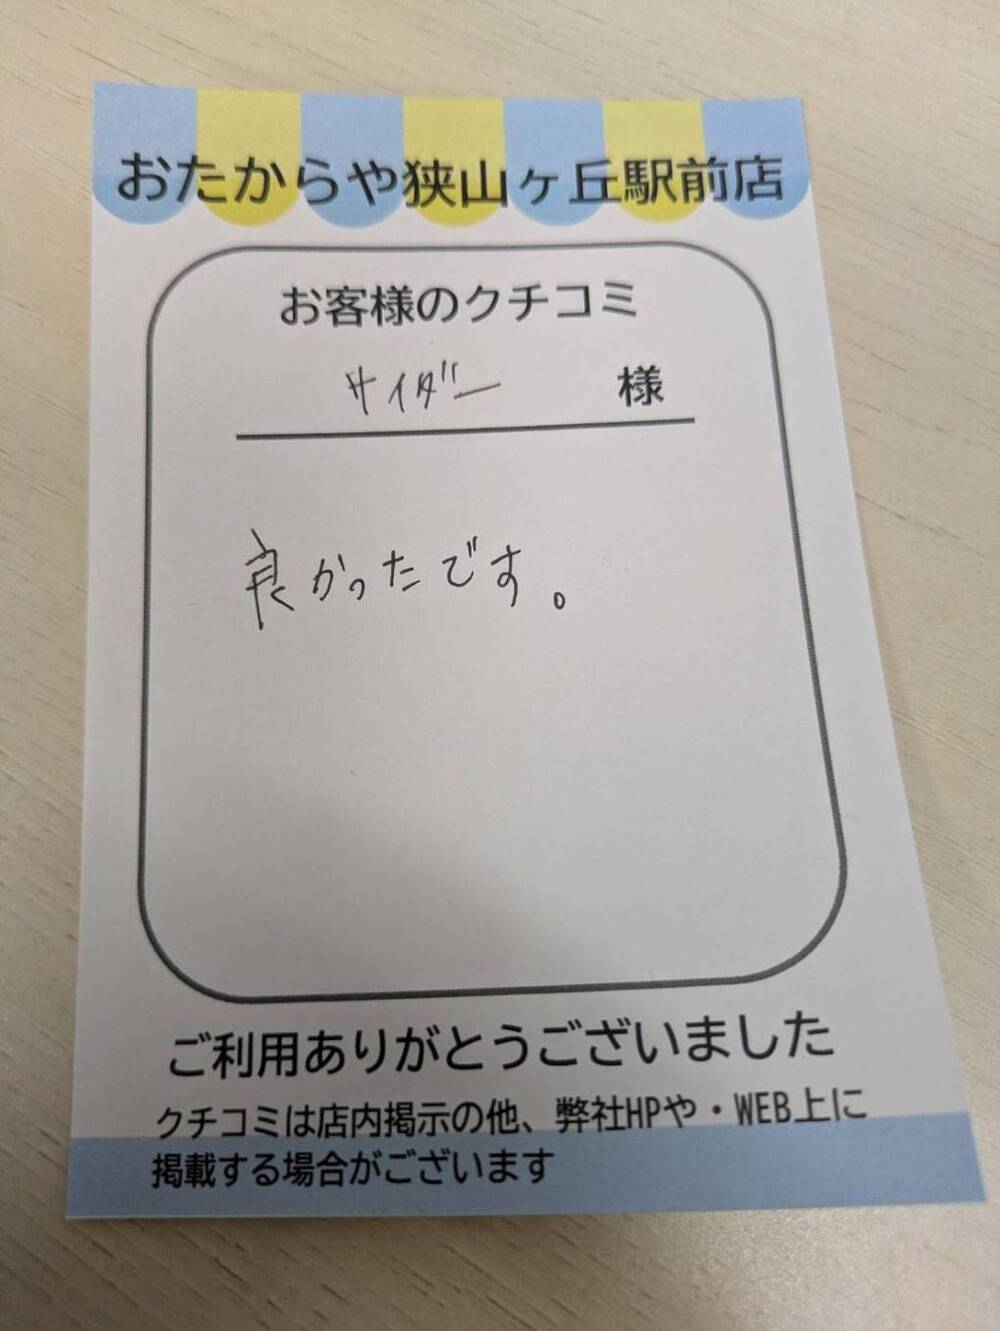 おたからや狭山ヶ丘駅前店
お客様のクチコミ
サイダー 様
良かったです。
ご利用ありがとうございました
クチコミは店内掲示の他、弊社HPや・WEB上に
掲載する場合がございます